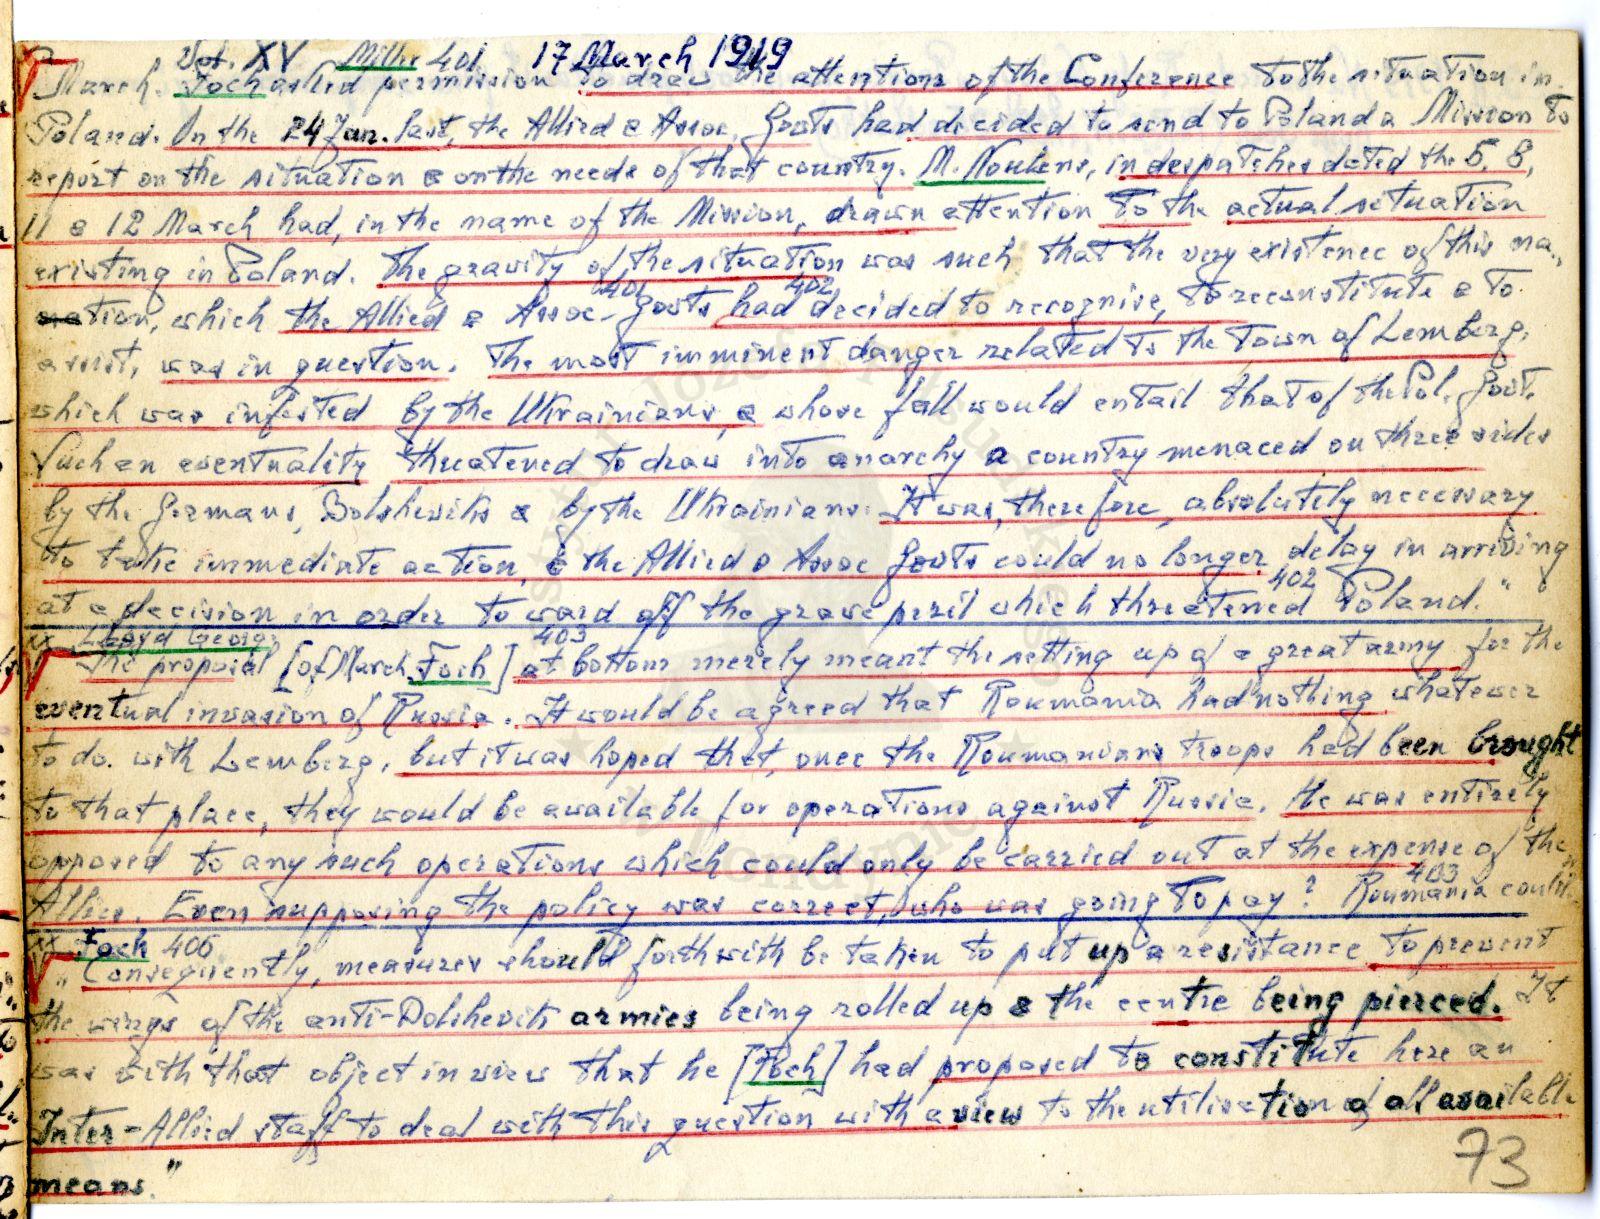 Vol. XV Miller 401 17 March 1919
March. Foch asked permission to draw the attentions of the Conference to the situation in
Poland. On the 24 Jan. last, the Allied & Assoc. Govts had decided to send to Poland a Mission to
report on the situation & on the needs of that country. M. Noulens, in despatches dated the 5, 8,
11 & 12 March had, in the name of the Mission, drawn attention to the actual situation
existing in Poland. The gravity of the situation was such that the very existence of this na-
401 402
tion, which the Allied & Assoc. Govts had decided to recognise, to reconstitute & to
assist, was in question. The most imminent danger related to the Town of Lemberg,
which was infested by the Ukrainians, & whose fall would entail that of the Pol. Govt.
Such an eventuality threatened to draw into anarchy a country menaced on three sides
by the Germans, Bolsheviks & by the Ukrainians. It was, therefore, absolutely necessary
to take immediate action, & the Allied & Assoc Govts could no longer delay in arriving
at a decision in order to ward off the grave peril which threatened 402 Poland."
xx Lloyd George 403
The proposal [of March. Foch] at bottom merely meant the setting up of a great army for the
eventual invasion of Russia. It would be agreed that Roumania had nothing whatever
to do with Lemberg, but it was hoped that, once the Roumanians troops had been brought
to that place, they would be available for operations against Russia. He was entirely
opposed to any such operations which could only be carried out at the expense of the
Allies. Even supposing the policy was correct, who was going to pay? 403 Roumania couldn't
xx Foch 406
" Consequently, measures should forthwith be taken to put up a resistance to prevent
the wings of the anti-Bolshevik armies being rolled up & the centre being pierced. It
was with that object in view that he [Foch] had proposed to constitute here an
Inter-Allied staff to deal with this question with a view to the utilisation of all available
means."
73